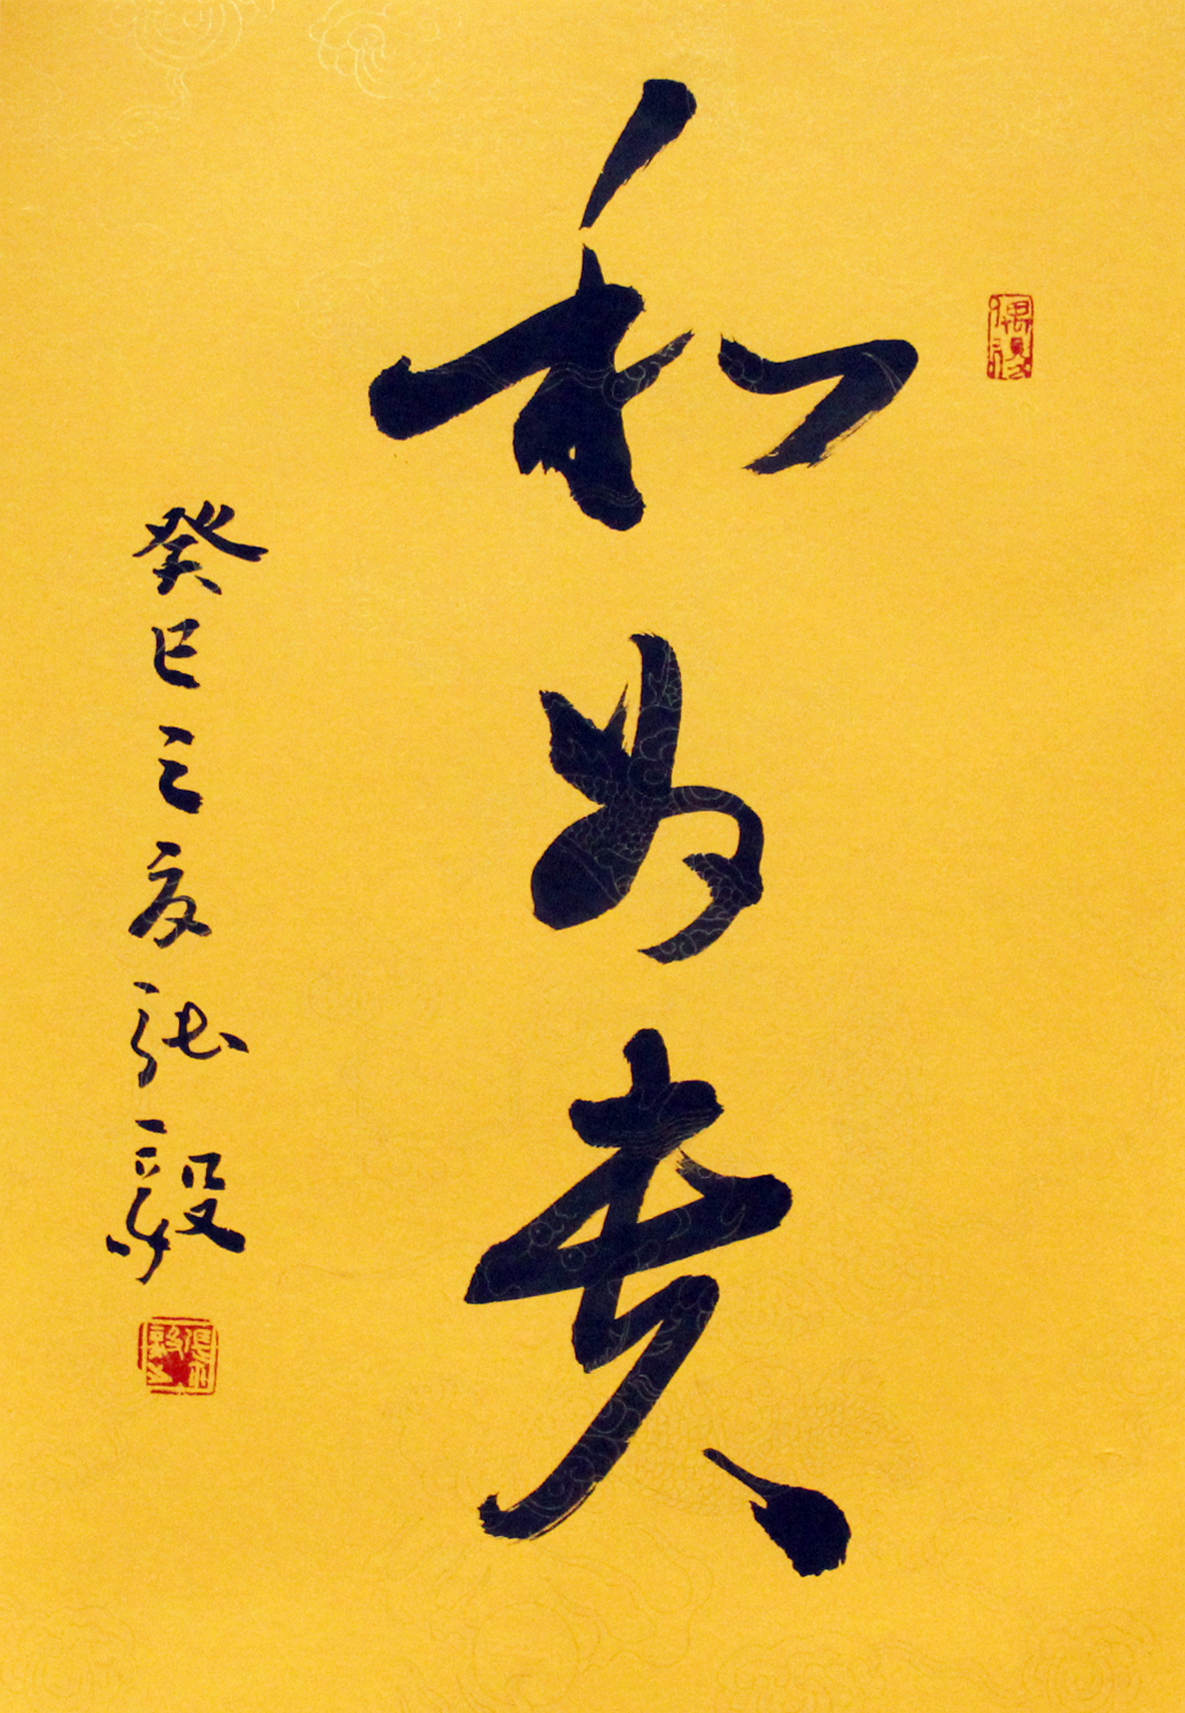 和为贵
癸巳之夏张毅